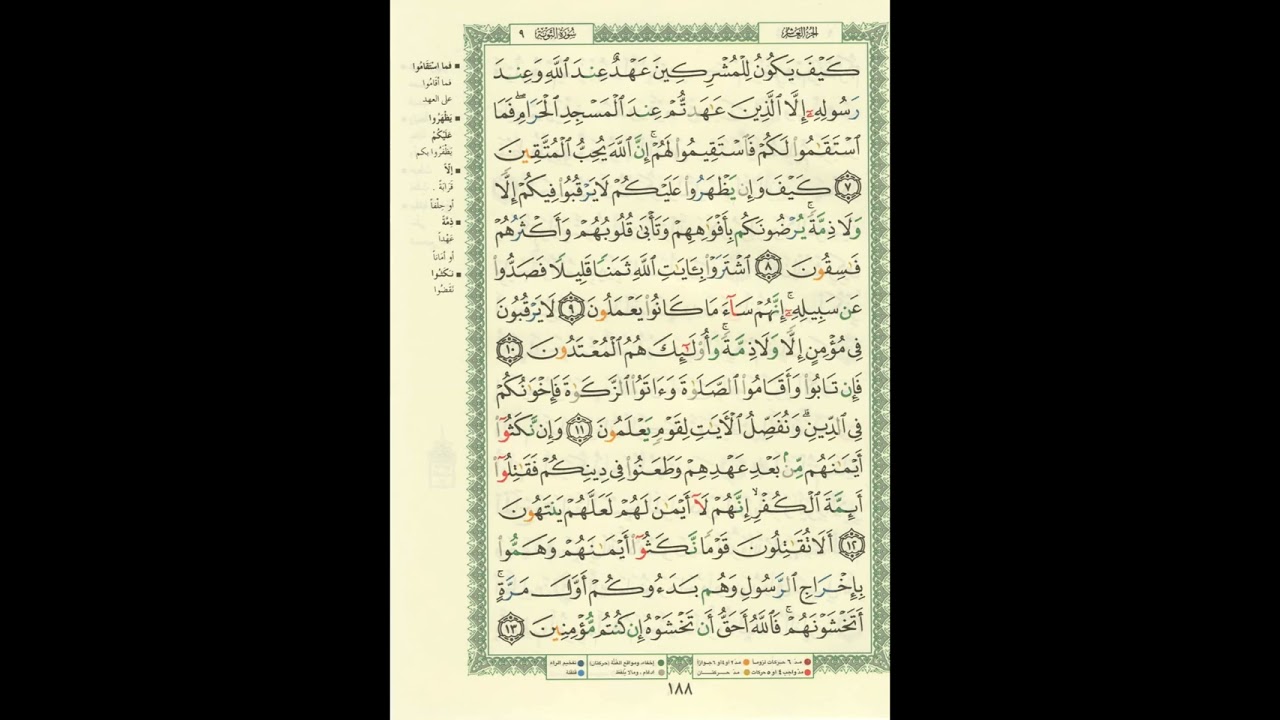 الجزء العاشر
سورة التوبة ٩
كَيْفَ يَكُونُ لِلْمُشْرِكِينَ عَهْدٌ عِندَ اللَّهِ وَعِندَ
رَسُولِهِۦٓ إِلَّا الَّذِينَ عَٰهَدتُّمْ عِندَ الْمَسْجِدِ الْحَرَامِ ۖ فَمَا
اسْتَقَٰمُوا لَكُمْ فَاسْتَقِيمُوا لَهُمْ ۚ إِنَّ اللَّهَ يُحِبُّ الْمُتَّقِينَ
٧ كَيْفَ وَإِن يَظْهَرُوا عَلَيْكُمْ لَا يَرْقُبُوا فِيكُمْ إِلًّا
وَلَا ذِمَّةً ۚ يُرْضُونَكُم بِأَفْوَٰهِهِمْ وَتَأْبَىٰ قُلُوبُهُمْ وَأَكْثَرُهُمْ
فَٰسِقُونَ ٨ اشْتَرَوْا بِـَٔايَٰتِ اللَّهِ ثَمَنًا قَلِيلًا فَصَدُّوا
عَن سَبِيلِهِۦٓ ۚ إِنَّهُمْ سَآءَ مَا كَانُوا يَعْمَلُونَ ٩ لَا يَرْقُبُونَ
فِى مُؤْمِنٍ إِلًّا وَلَا ذِمَّةً ۚ وَأُولَٰٓئِكَ هُمُ الْمُعْتَدُونَ ١٠
فَإِن تَابُوا وَأَقَامُوا الصَّلَوٰةَ وَءَاتَوُا الزَّكَوٰةَ فَإِخْوَٰنُكُمْ
فِى الدِّينِ ۗ وَنُفَصِّلُ الْـَٔايَٰتِ لِقَوْمٍ يَعْلَمُونَ ١١ وَإِن نَّكَثُوٓا
أَيْمَٰنَهُم مِّنۢ بَعْدِ عَهْدِهِمْ وَطَعَنُوا فِى دِينِكُمْ فَقَٰتِلُوٓا
أَئِمَّةَ الْكُفْرِ ۙ إِنَّهُمْ لَآ أَيْمَٰنَ لَهُمْ لَعَلَّهُمْ يَنتَهُونَ
١٢ أَلَا تُقَٰتِلُونَ قَوْمًا نَّكَثُوٓا أَيْمَٰنَهُمْ وَهَمُّوا
بِإِخْرَاجِ الرَّسُولِ وَهُم بَدَءُوكُمْ أَوَّلَ مَرَّةٍ ۚ
أَتَخْشَوْنَهُمْ ۚ فَاللَّهُ أَحَقُّ أَن تَخْشَوْهُ إِن كُنتُم مُّؤْمِنِينَ ١٣
فما استقاموا
فما أقاموا
على العهد
يظهروا
عليكم
يظفروا بكم
إلّاً
قرابةً
أو حلفاً
ذمّة
عهداً
أو أماناً
نكثوا
نقضوا
مد ٦ حركات لزوماً مد ٢ او ٤ او ٦ جوازاً
مد واجب ٤ او ٥ حركات مد حركتان
إخفاء، ومواقع الغنة (حركتان) تفخيم الراء
ادغام ، ومالا يلفظ قلقلة
١٨٨